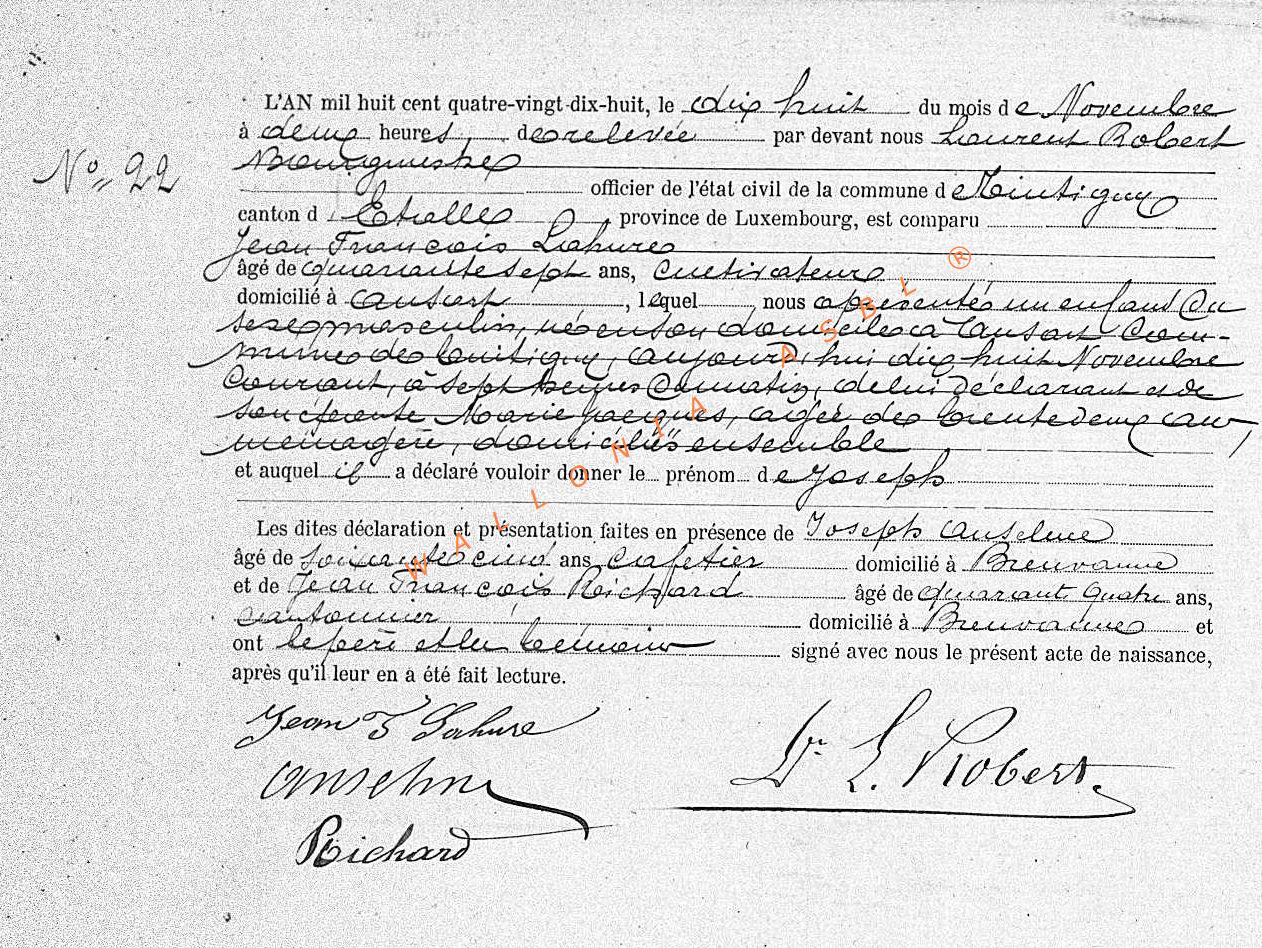 L'AN mil huit cent quatre-vingt-dix-huit, le dix huit du mois de Novembre
à deux heures de relevée par devant nous Laurent Robert
Bourgmestre
N° 22
officier de l'état civil de la commune de Tintigny
canton d'Etalle, province de Luxembourg, est comparu
Jean François Lahure
âgé de quarante sept ans, Cultivateur
domicilié à ansart, lequel nous a présenté un enfant du
sexe masculin, né en son domicile à ansart Com-
mune de tintigny, aujourd'hui dix huit Novembre
Courant, à sept heures du matin, de lui déclarant et de
son épouse Marie Jacques, agée de trente deux ans,
menagère, domiciliés ensemble
et auquel il a déclaré vouloir donner le prénom de Joseph
Les dites déclaration et présentation faites en présence de Joseph Anselme
âgé de soixante cinq ans Cafetier domicilié à Breuvanne
et de Jean François Richard âgé de quarant quatre ans,
cantonnier domicilié à Breuvanne et
ont le père et les temoins signé avec nous le présent acte de naissance,
après qu'il leur en a été fait lecture.
Jean F Lahure
Anselme
Dr. L. Robert.
Richard
WALLONIA ASBL ®